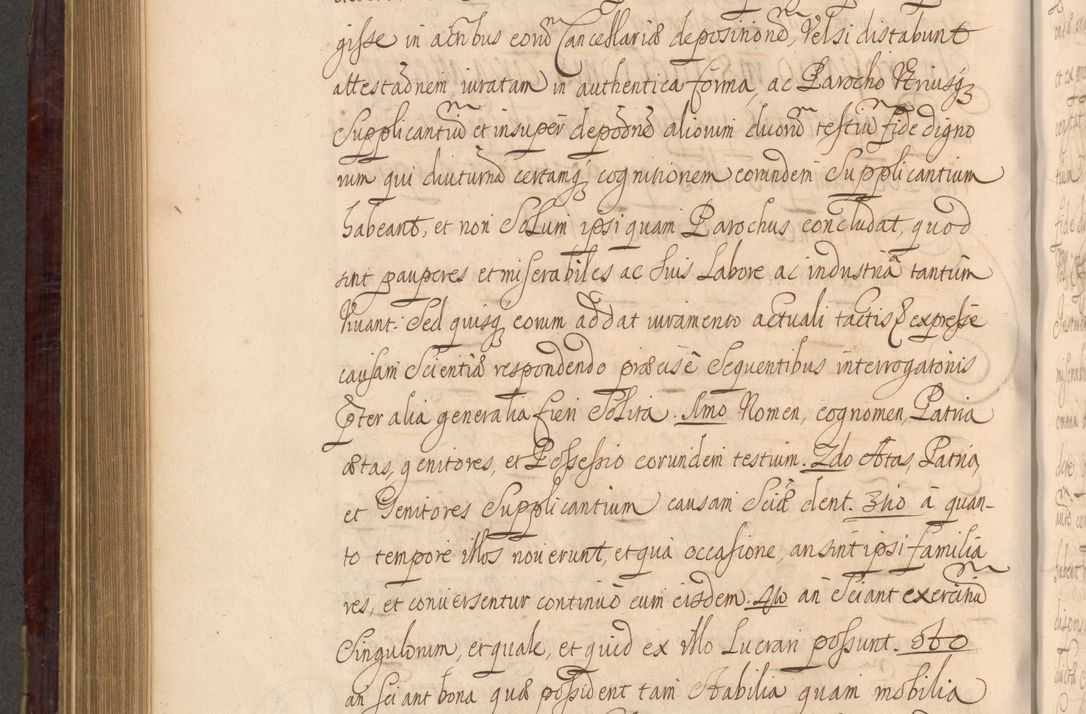 gisse in actibus eord Cancellariæ depositiones, Vel si distabunt
attestaõnem iuratam in authentica forma, ac Parocho Utriusq3
Supplicantiũ et insuper depõõne aliorum duorũ testiũ fide digno
rum qui diuturnã certamq3 cognitionem eorundem Supplicantium
habeant, et non Solum ipsi quam Parochus concludat, quod
sint pauperes et miserabiles ac Suis Labore ac industriâ tantum
Vivant. Sed quisq3 eorum addat iuramento actuali tactis & expresse
causam Scientiæ respondendo præcisè Sequentibus interrogatoriis
ꝑter alia generalia fieri Solita. Imo Nomen, cognomen, Patria
ætas, genitores, et Possessio eorundem testium. 2do Ætas, Patria,
et Genitores Supplicantium causam Sciæ dent. 3tio à quan-
to tempore illos noverunt, et qua occasione, an sint ipsi familia
res, et conversentur continuò cum eisdem. 4to an Sciant exercitiũ
Singulorum, et quale, et quid ex illo Lucrari possunt. 5to
an Sciant bona quæ possident tam Stabilia quam mobilia